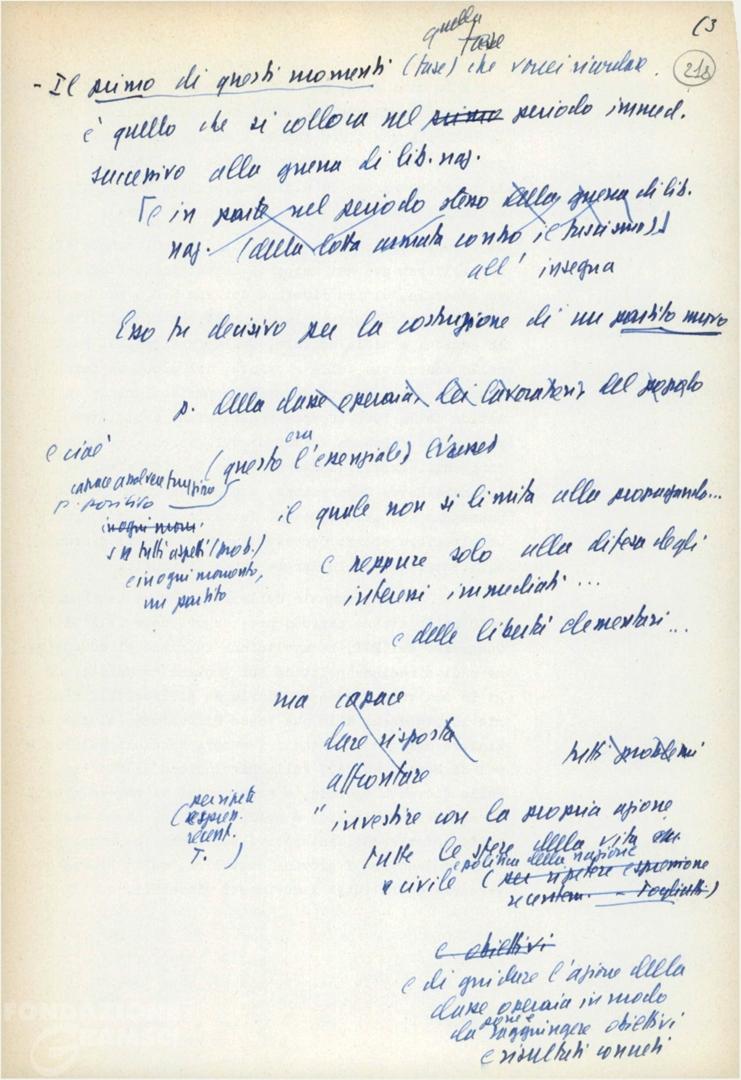 quella
fase
(3
218
- Il primo di questi momenti (fase) che vorrei ricordare
è quello che si colloca nel primo periodo immed.
successivo alla guerra di lib. naz.
[e in parte nel periodo stesso della guerra di lib.
naz. (della lotta armata contro il fascismo)]
all' insegna
Esso fu decisivo per la costruzione di un partito nuovo
p. della classe operaia, dei lavoratori, del popolo
e cioè
era
(questo l'essenziale)
capace
p. positivo
in ogni mom.
in tutti aspetti (prob.)
e in ogni momento,
un partito
il quale non si limita alla propaganda...
e neppure solo alla difesa degli
interessi immediati ...
e delle libertà elementari...
ma capace
dare risposta
tutti problemi
affrontare
" investire con la propria azione
tutte le sfere della vita
e politica della nazione
civile (per ripetere espressione
recentem. - Togliatti)
(per ripete
espress.
recent.
T. )
e obiettivi
e di guidare l'azione della
classe operaia in modo
da raggiungere obiettivi
e risultati concreti
FONDAZIONE
GRAMSCI